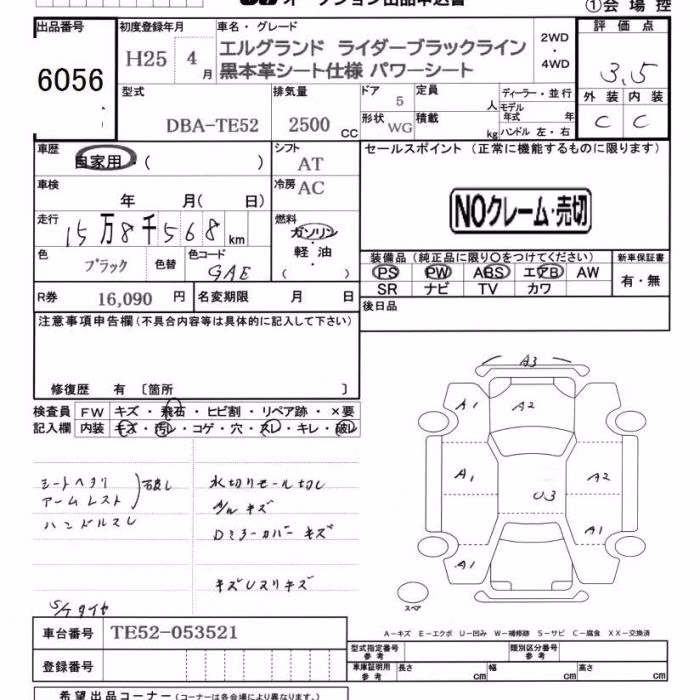 オークション出品申込書
①会場控
出品番号
6056
初度登録年月
H25 4月
車名・グレード
エルグランド ライダーブラックライン
黒本革シート仕様 パワーシート
2WD
・
4WD
評価点
3.5
外装 内装
C C
型式
DBA-TE52
排気量
2500 CC
ドア 5
形状 WG
定員 人
積載 kg
ディーラー・並行
モデル年式 年
ハンドル 左・右
車歴
自家用・( )
シフト
AT
セールスポイント (正常に機能するものに限ります)
NOクレーム・売切
車検
年 月( 日)
冷房 AC
走行
15万8千568 km
燃料
ガソリン
・
軽油
( )
色
ブラック
色替
色コード
GAE
装備品 (純正品に限り〇をつけてください)
PS PW ABS エアB AW
SR ナビ TV カワ
新車保証書
有・無
R券 16,090 円
名変期限 月 日
後日品
注意事項申告欄(不具合内容等は具体的に記入して下さい)
修復歴 有 〔箇所 〕
検査員
記入欄
FW キズ・飛石・ヒビ割・リペア跡・×要
内装 キズ・汚レ・コゲ・穴・スレ・キレ・破レ
シートヘタリ
アームレスト
ハンドルスレ
水切りモール切レ
キズ
Dミラーカバー キズ
S/Tタイヤ
A3
A1
A2
A1
A2
U3
A1
A1
スペア
A-キズ E-エクボ U-凹み W-補修跡 S-サビ C-腐食 XX-交換済
車台番号 TE52-053521
登録番号
型式指定番号
参考
類別区分番号
参考
車庫証明用
参考
長さ cm
幅 cm
高さ cm
希望出品コーナー (コーナーは各会場により異なります。)